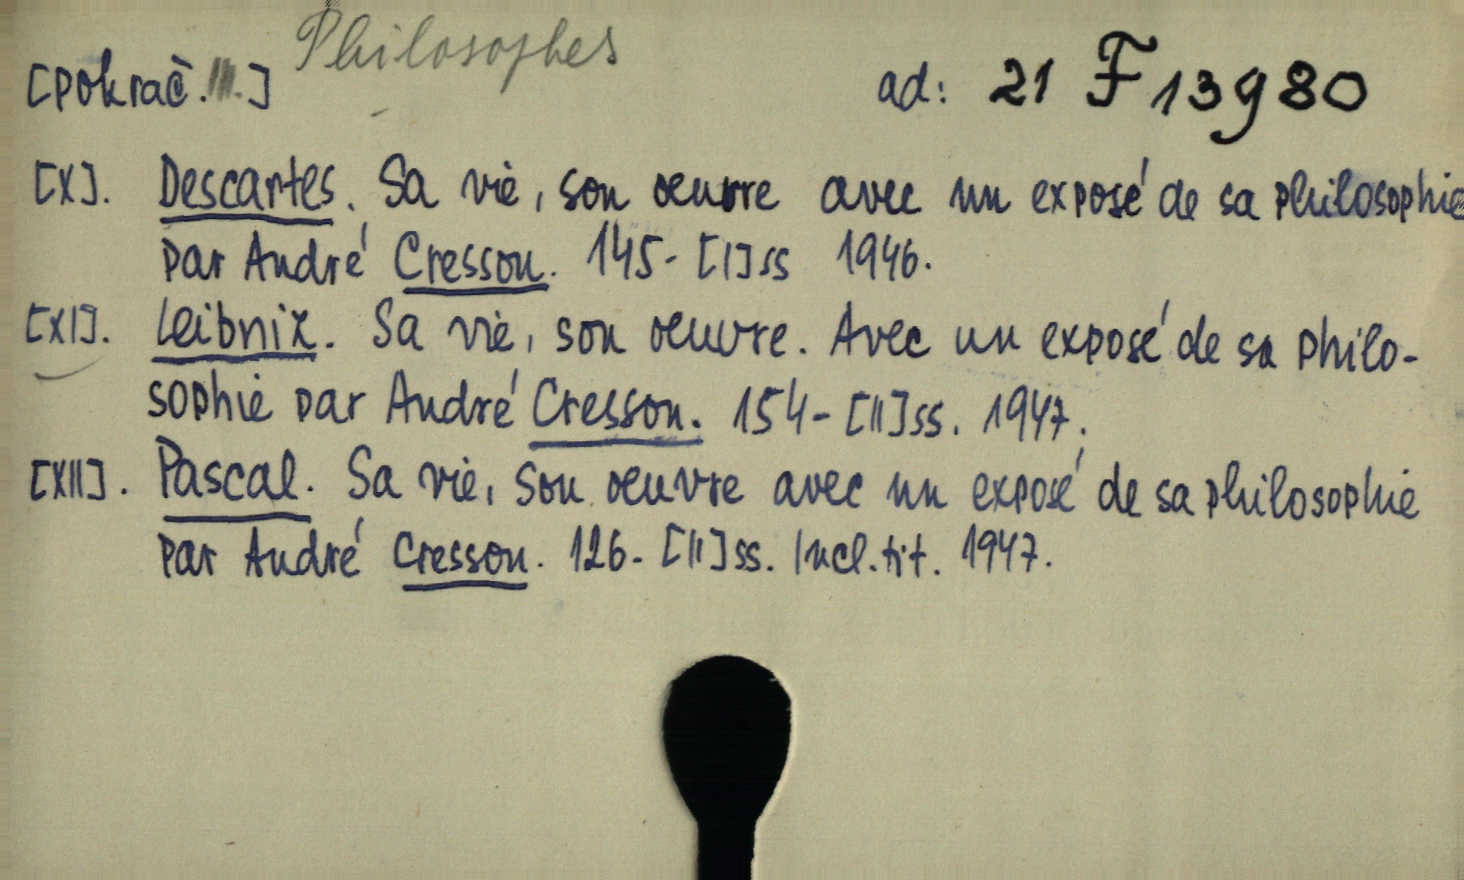 Philosophes
[Pokrač. III.] ad: 21 F 13980
[X]. Descartes. Sa vie, son oeuvre avec un exposé de sa philosophie
par André Cresson. 145-[I] ss 1946.
[XI]. Leibniz. Sa vie, son oeuvre. Avec un exposé de sa philo-
sophie par André Cresson. 154-[II] ss. 1947.
[XII]. Pascal. Sa vie, son oeuvre avec un exposé de sa philosophie
par André Cresson. 126-[II] ss. Incl. tit. 1947.